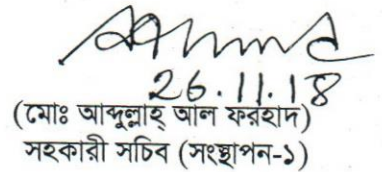 26.11.18
(মোঃ আব্দুল্লাহ্ আল ফরহাদ)
সহকারী সচিব (সংস্থাপন-১)